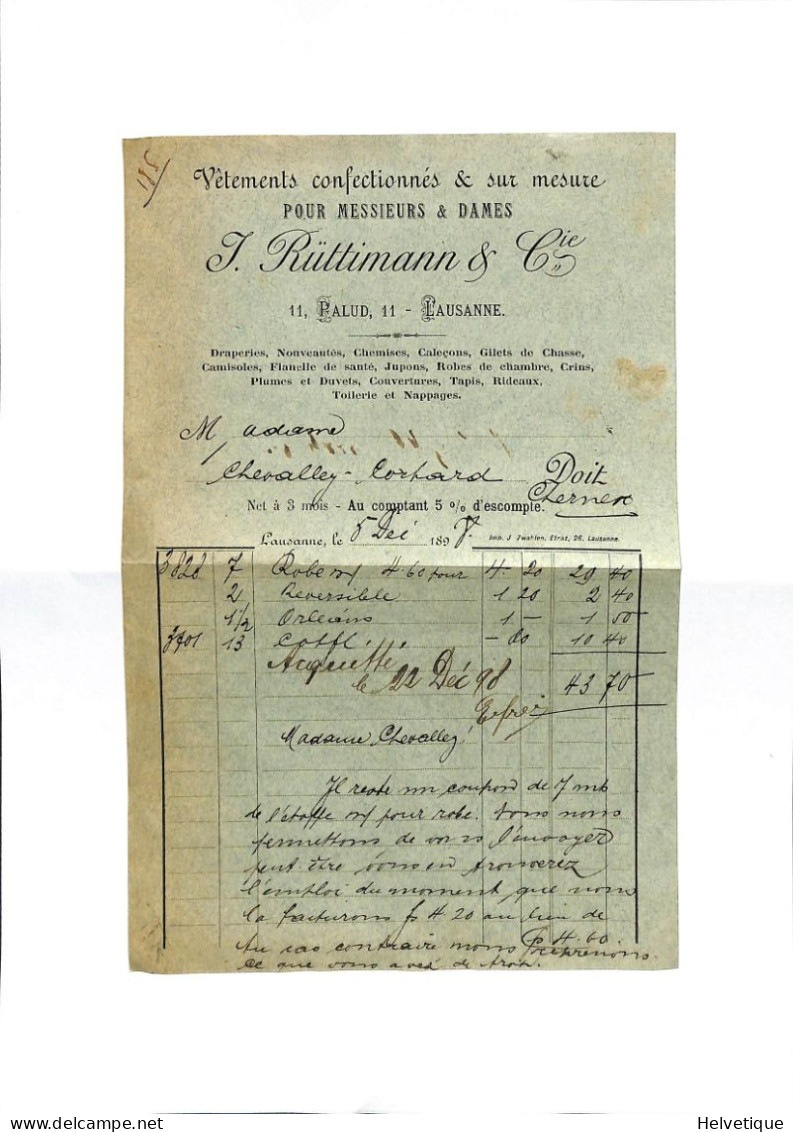 Vêtements confectionnés & sur mesure
POUR MESSIEURS & DAMES
J. Rüttimann & Cie
11, PALUD, 11 - LAUSANNE.
Draperies, Nouveautés, Chemises, Caleçons, Gilets de Chasse,
Camisoles, Flanelle de santé, Jupons, Robes de chambre, Crins,
Plumes et Duvets, Couvertures, Tapis, Rideaux,
Toilerie et Nappages.
Madame
Chevalley- Doit
Chernex
Net à 3 mois - Au comptant 5 % d'escompte.
Lausanne, le 5 Déc 1898. Imp. J Zwahlen, Etraz, 26, Lausanne.
3828 7 Robe 4.60 pour 4. 20 29 40
2 Reversible 1 20 2 40
1 1/2 Orléans 1 - 1 50
13 - 80 10 40
Acquitté
le 22 Déc 98 43 70
Madame Chevalley!
Il reste un coupon de 7 mt
de l'étoffe pour robe. Nous nous
permettons de vous l'envoyer
peut être vous en trouverez
l'emploi du moment que nous
la facturons fs 4 20 au lieu de
fs 4.60.
Au cas contraire nous reprenons
ce que vous avez de trop.
Helvetique